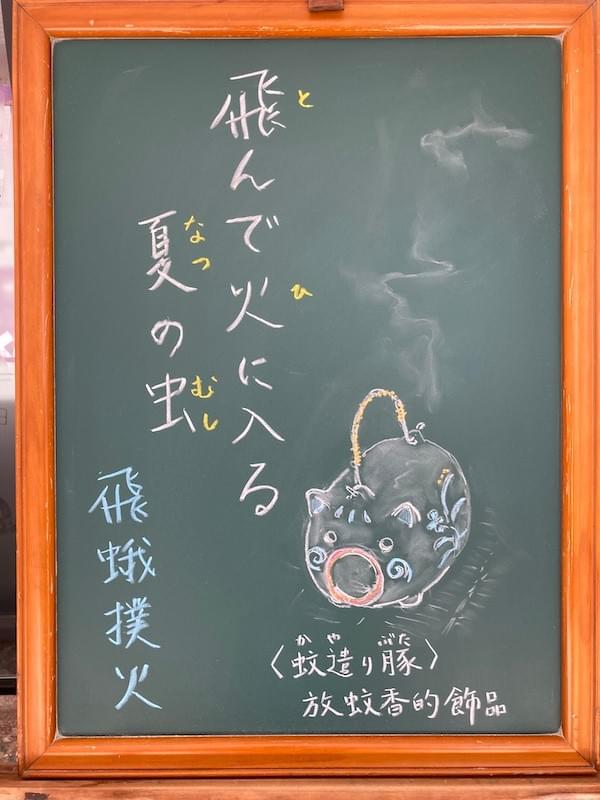 飛んで火に入る
と
ひ
夏の虫
なつ
むし
飛蛾撲火
かやぶた
〈蚊遣り豚〉
放蚊香的飾品